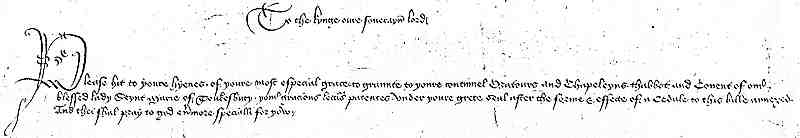 To the kynge oure soverayn lord
Please hit to youre hyenes . of youre most especial grace to graunte to youre contenuel Oratours and Chapeleyns thabbot and Covent of our
blessed lady Seynt Marie of Teukesbury . your gracious lettres patentes under youre grete seal after the forme & effecte of a Cedule to this bille annexed .
And thei shul pray to god evermore specialli for yow